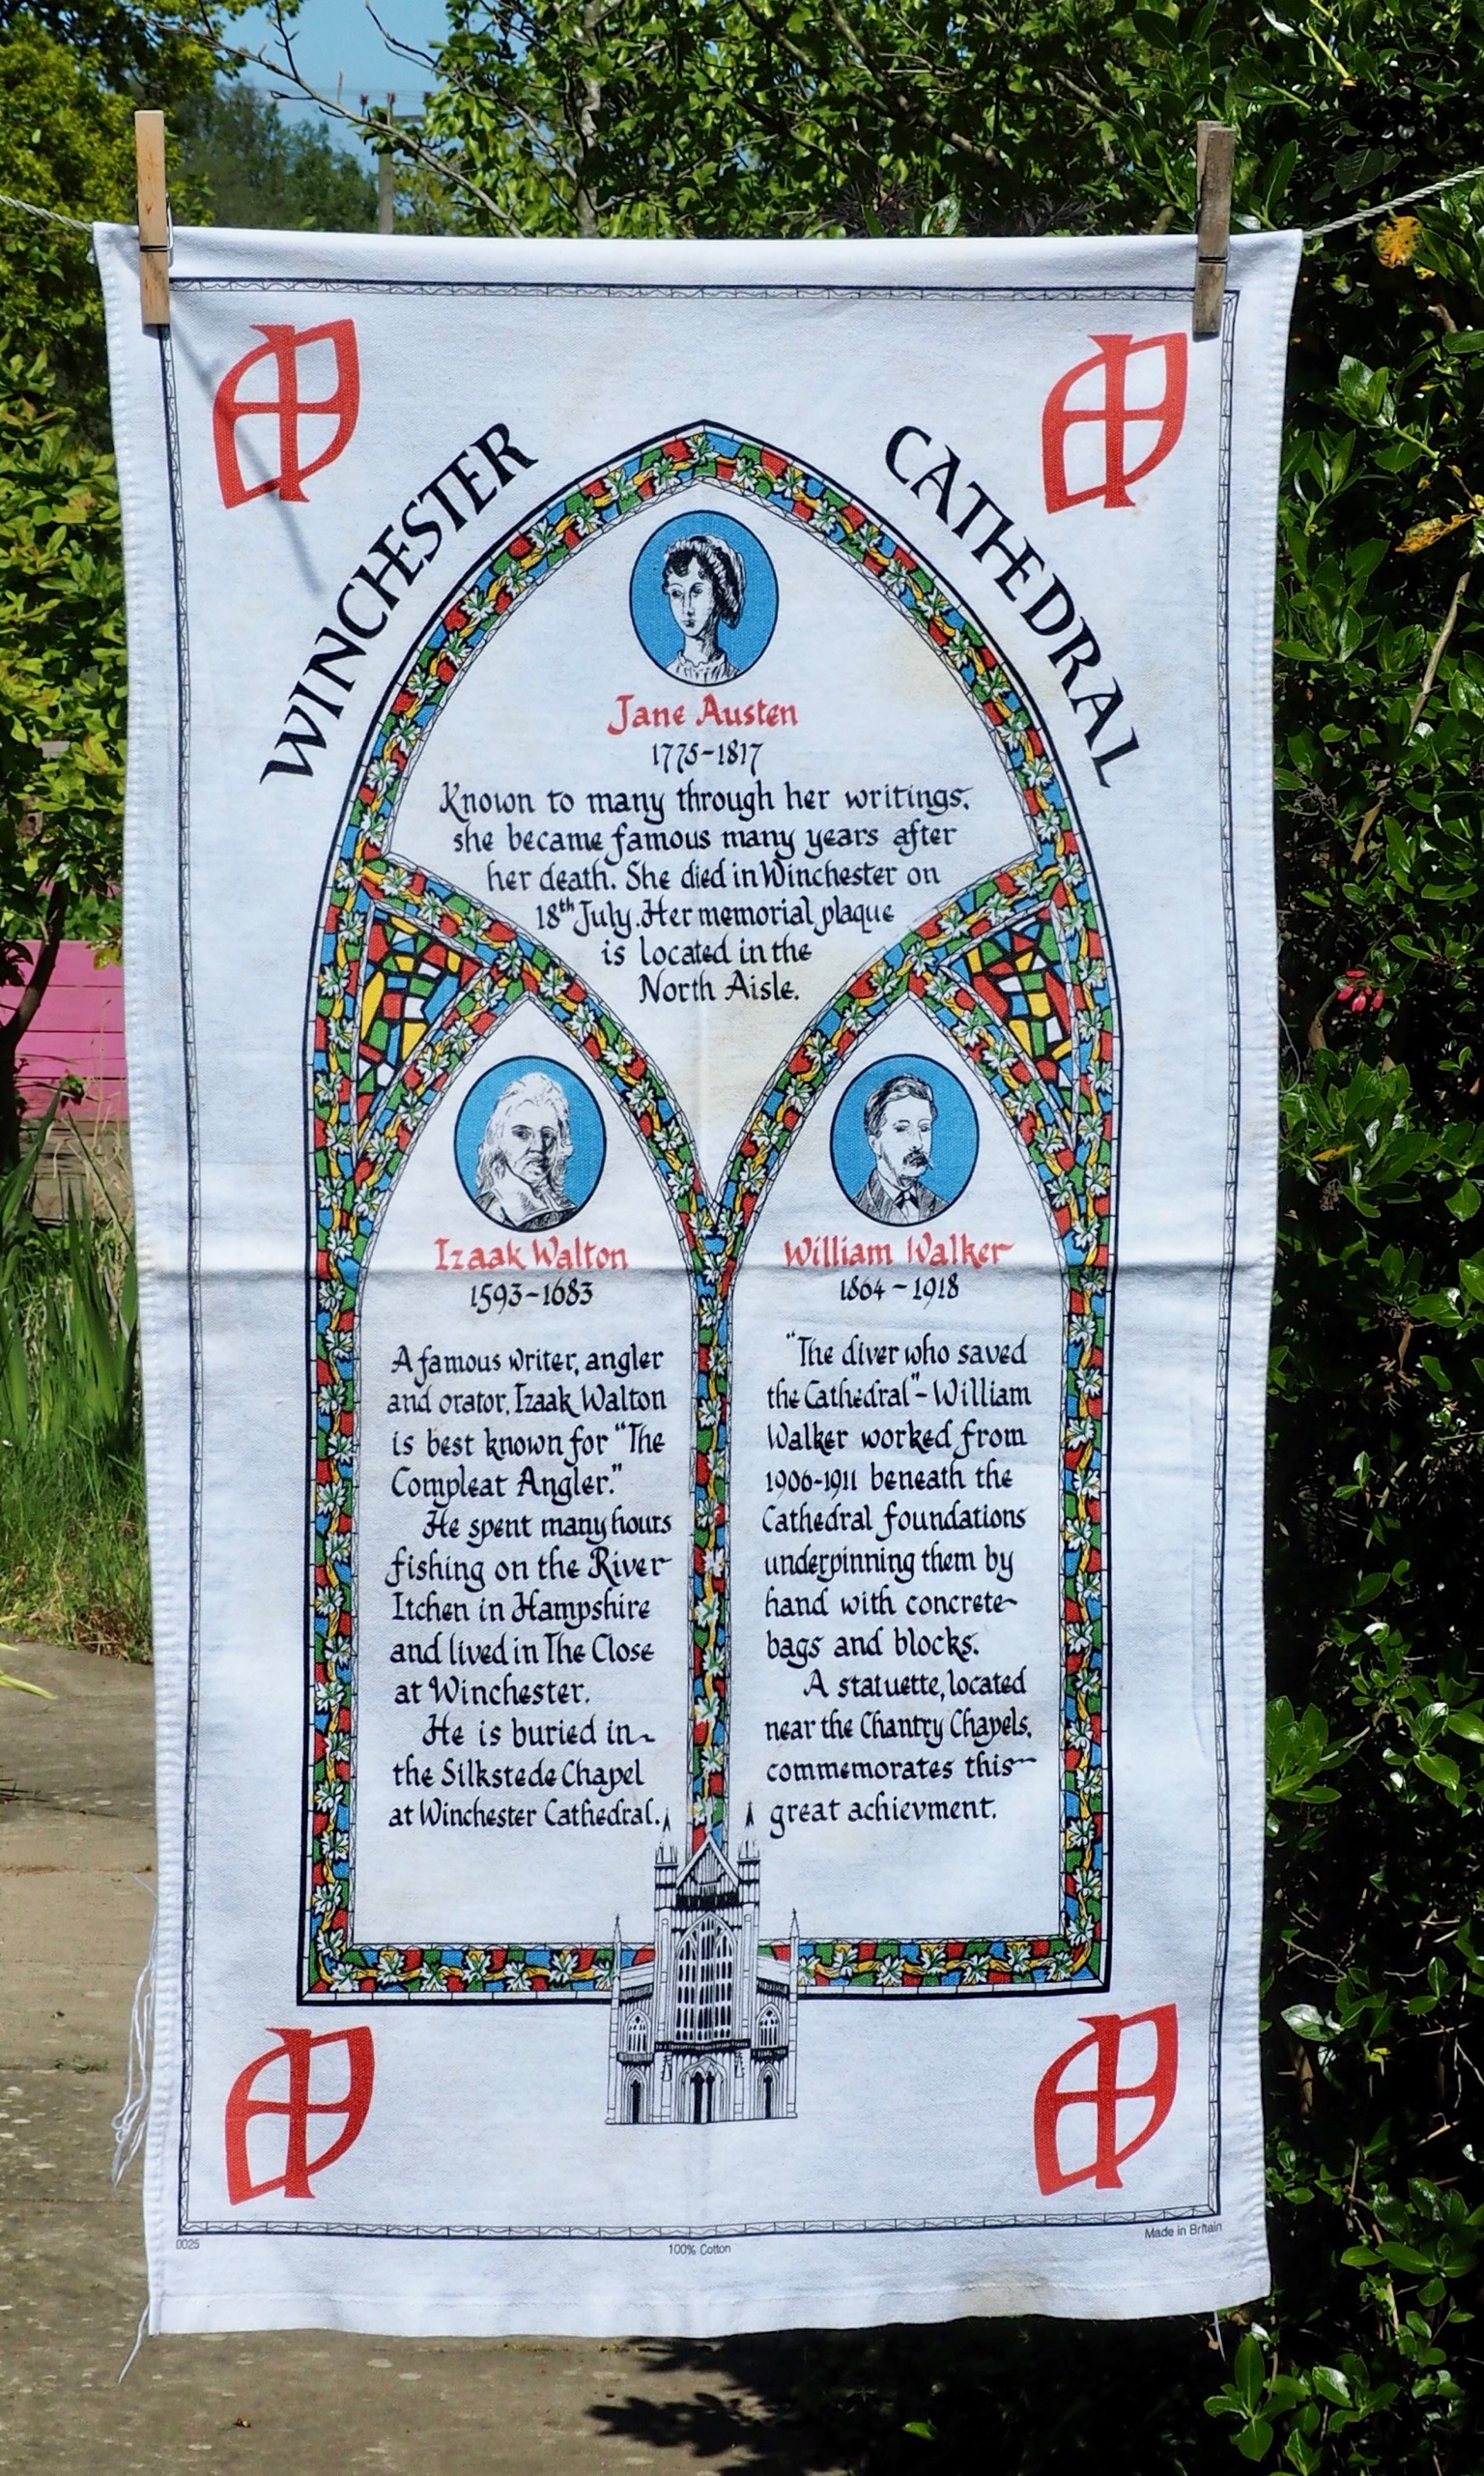 WINCHESTER CATHEDRAL
Jane Austen
1775-1817
Known to many through her writings,
she became famous many years after
her death. She died in Winchester on
18th July. Her memorial plaque
is located in the
North Aisle.
Izaak Walton
1593-1683
A famous writer, angler
and orator, Izaak Walton
is best known for "The
Compleat Angler."
He spent many hours
fishing on the River
Itchen in Hampshire
and lived in The Close
at Winchester.
He is buried in
the Silkstede Chapel
at Winchester Cathedral.
William Walker
1864-1918
"The diver who saved
the Cathedral"- William
Walker worked from
1906-1911 beneath the
Cathedral foundations
underpinning them by
hand with concrete
bags and blocks.
A statuette, located
near the Chantry Chapels,
commemorates this
great achievment.
0025
100% Cotton
Made in Britain